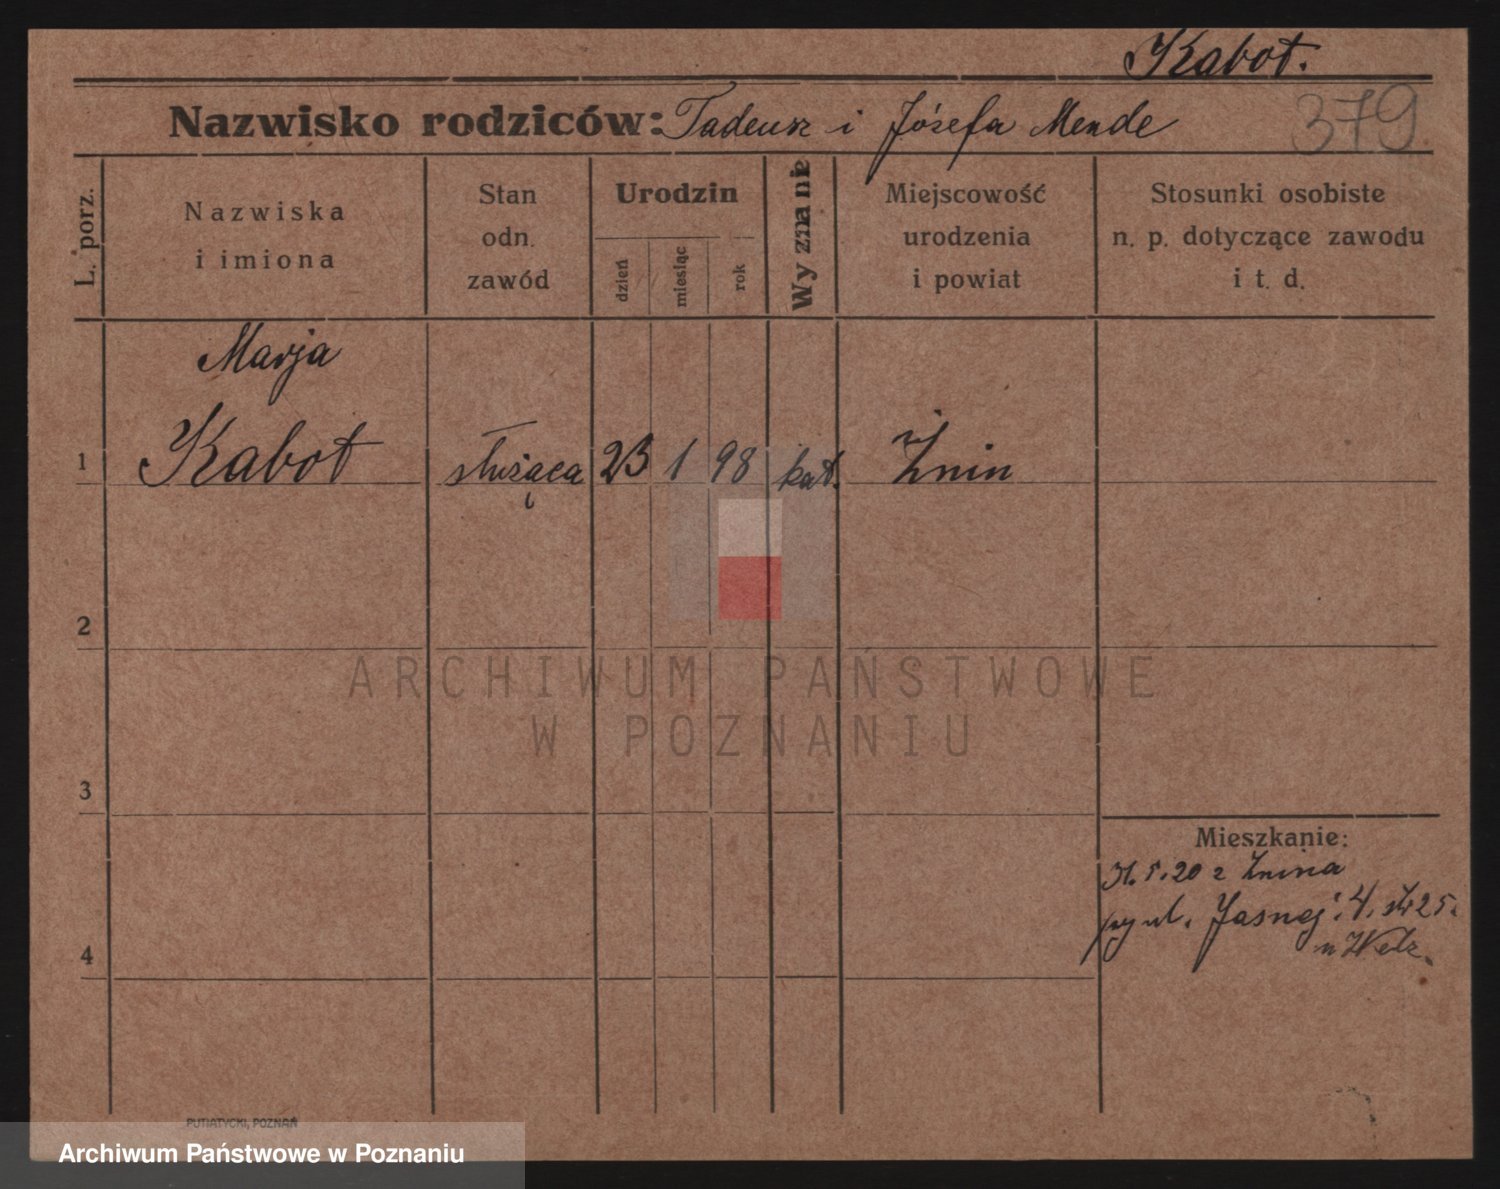 Kabot.
Nazwisko rodziców: Tadeusz i Józefa Mende
379
L. porz.
Nazwiska
i imiona
Stan
odn.
zawód
Urodzin
dzień
miesiąc
rok
Wyznanie
Miejscowość
urodzenia
i powiat
Stosunki osobiste
n. p. dotyczące zawodu
i t. d.
Marja
1 Kabot służąca 23 1 98 kat. Żnin
2
ARCHIWUM PAŃSTWOWE
W POZNANIU
3
Mieszkanie:
5.20 z Żnina
ul. Jasnej 4. 25.
4
PUTIATYCKI, POZNAŃ
Archiwum Państwowe w Poznaniu